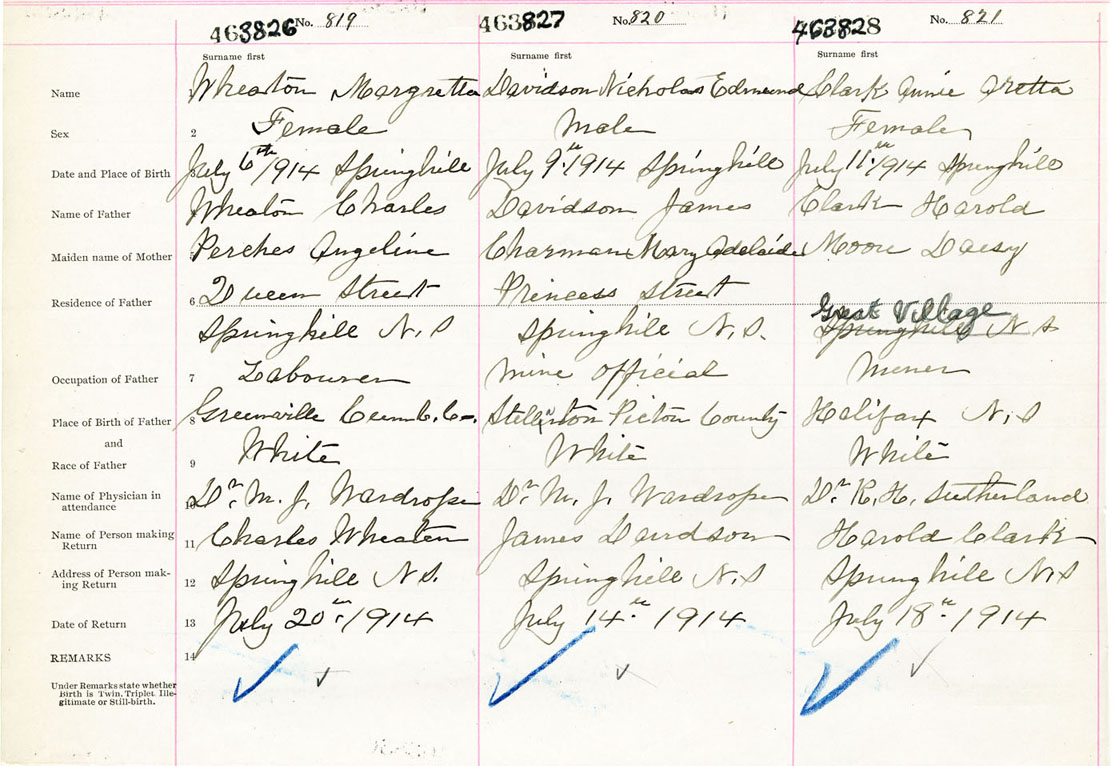 463826 No. 819 463827 No. 820 463828 No. 821
Surname first Surname first Surname first
Name Wheaton Margretta Davidson Nicholas Edmund Clark Annie Aretta
Sex 2 Female Male Female
Date and Place of Birth July 6th 1914 Springhill July 9th 1914 Springhill July 11th 1914 Springhill
Name of Father Wheaton Charles Davidson James Clark Harold
Maiden name of Mother Perches Angeline Charman Mary Adelaide Moore Daisy
Residence of Father 6 Queen Street Princess Street Great Village
Springhill N.S Springhill N.S. Springhill N S
Occupation of Father 7 Labourer Mine Official Miner
Place of Birth of Father 8 Greenville Cumb. Co. Stellarton Pictou County Halifax N.S
and
Race of Father 9 White White White
Name of Physician in
attendance 10 Dr. M. J. Wardrope Dr. M. J. Wardrope Dr. R. H. Sutherland
Name of Person making
Return 11 Charles Wheaton James Davidson Harold Clark
Address of Person mak-
ing Return 12 Springhill N.S. Springhill N.S Springhill N.S
Date of Return 13 July 20th 1914 July 14th 1914 July 18th 1914
REMARKS 14
Under Remarks state whether
Birth is Twin, Triplet, Ille-
gitimate or Still-birth.